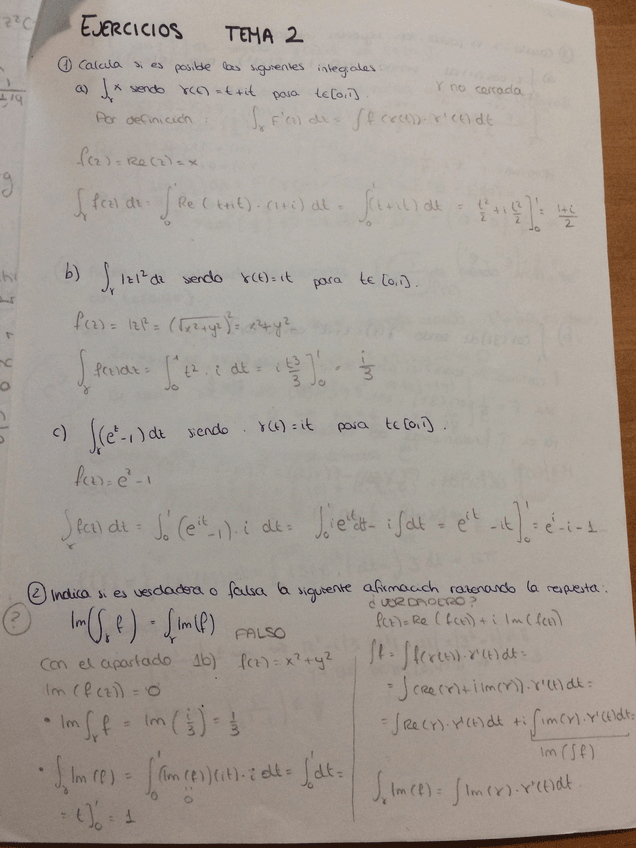 EJERCICIOS TEMA 2
① Calcula si es posible las siguientes integrales:
a) ∫_γ x siendo γ(t) = t+it para t∈[0,1]. γ no cerrada
Por definición: ∫_γ F'(z) dz = ∫ f(γ(t))·γ'(t) dt
f(z) = Re(z) = x
∫_γ f(z) dz = ∫_0^1 Re(t+it)·(1+i) dt = ∫_0^1 (t+it) dt = t²/2 + i t²/2 ]_0^1 = (1+i)/2
b) ∫_γ |z|² dz siendo γ(t) = it para t∈[0,1].
f(z) = |z|² = (√(x²+y²))² = x²+y²
∫_γ f(z) dz = ∫_0^1 t²·i dt = i t³/3 ]_0^1 = i/3
c) ∫_γ (e^z - 1) dz siendo γ(t) = it para t∈[0,1].
f(z) = e^z - 1
∫_γ f(z) dz = ∫_0^1 (e^{it} - 1)·i dt = ∫_0^1 ie^{it} dt - i∫dt = e^{it} - it ]_0^1 = e^i - i - 1
② Indica si es verdadera o falsa la siguiente afirmación razonando la respuesta:
? Im(∫_γ f) = ∫_γ Im(f) FALSO
Con el apartado 1b) f(z) = x²+y²
Im(f(z)) = 0
• Im∫_γ f = Im(i/3) = 1/3
• ∫_γ Im(f) = ∫_0^1 (Im(f))(it)·i dt = ∫_0^1 dt =
0
= t]_0^1 = 1
¿VERDADERO?
f(z) = Re(f(z)) + i Im(f(z))
∫f = ∫f(γ(t))·γ'(t) dt =
= ∫(Re(γ) + i Im(γ))·γ'(t) dt =
= ∫Re(γ)·γ'(t) dt + i∫Im(γ)·γ'(t) dt =
Im(∫f)
∫_γ Im(f) = ∫Im(γ)·γ'(t) dt